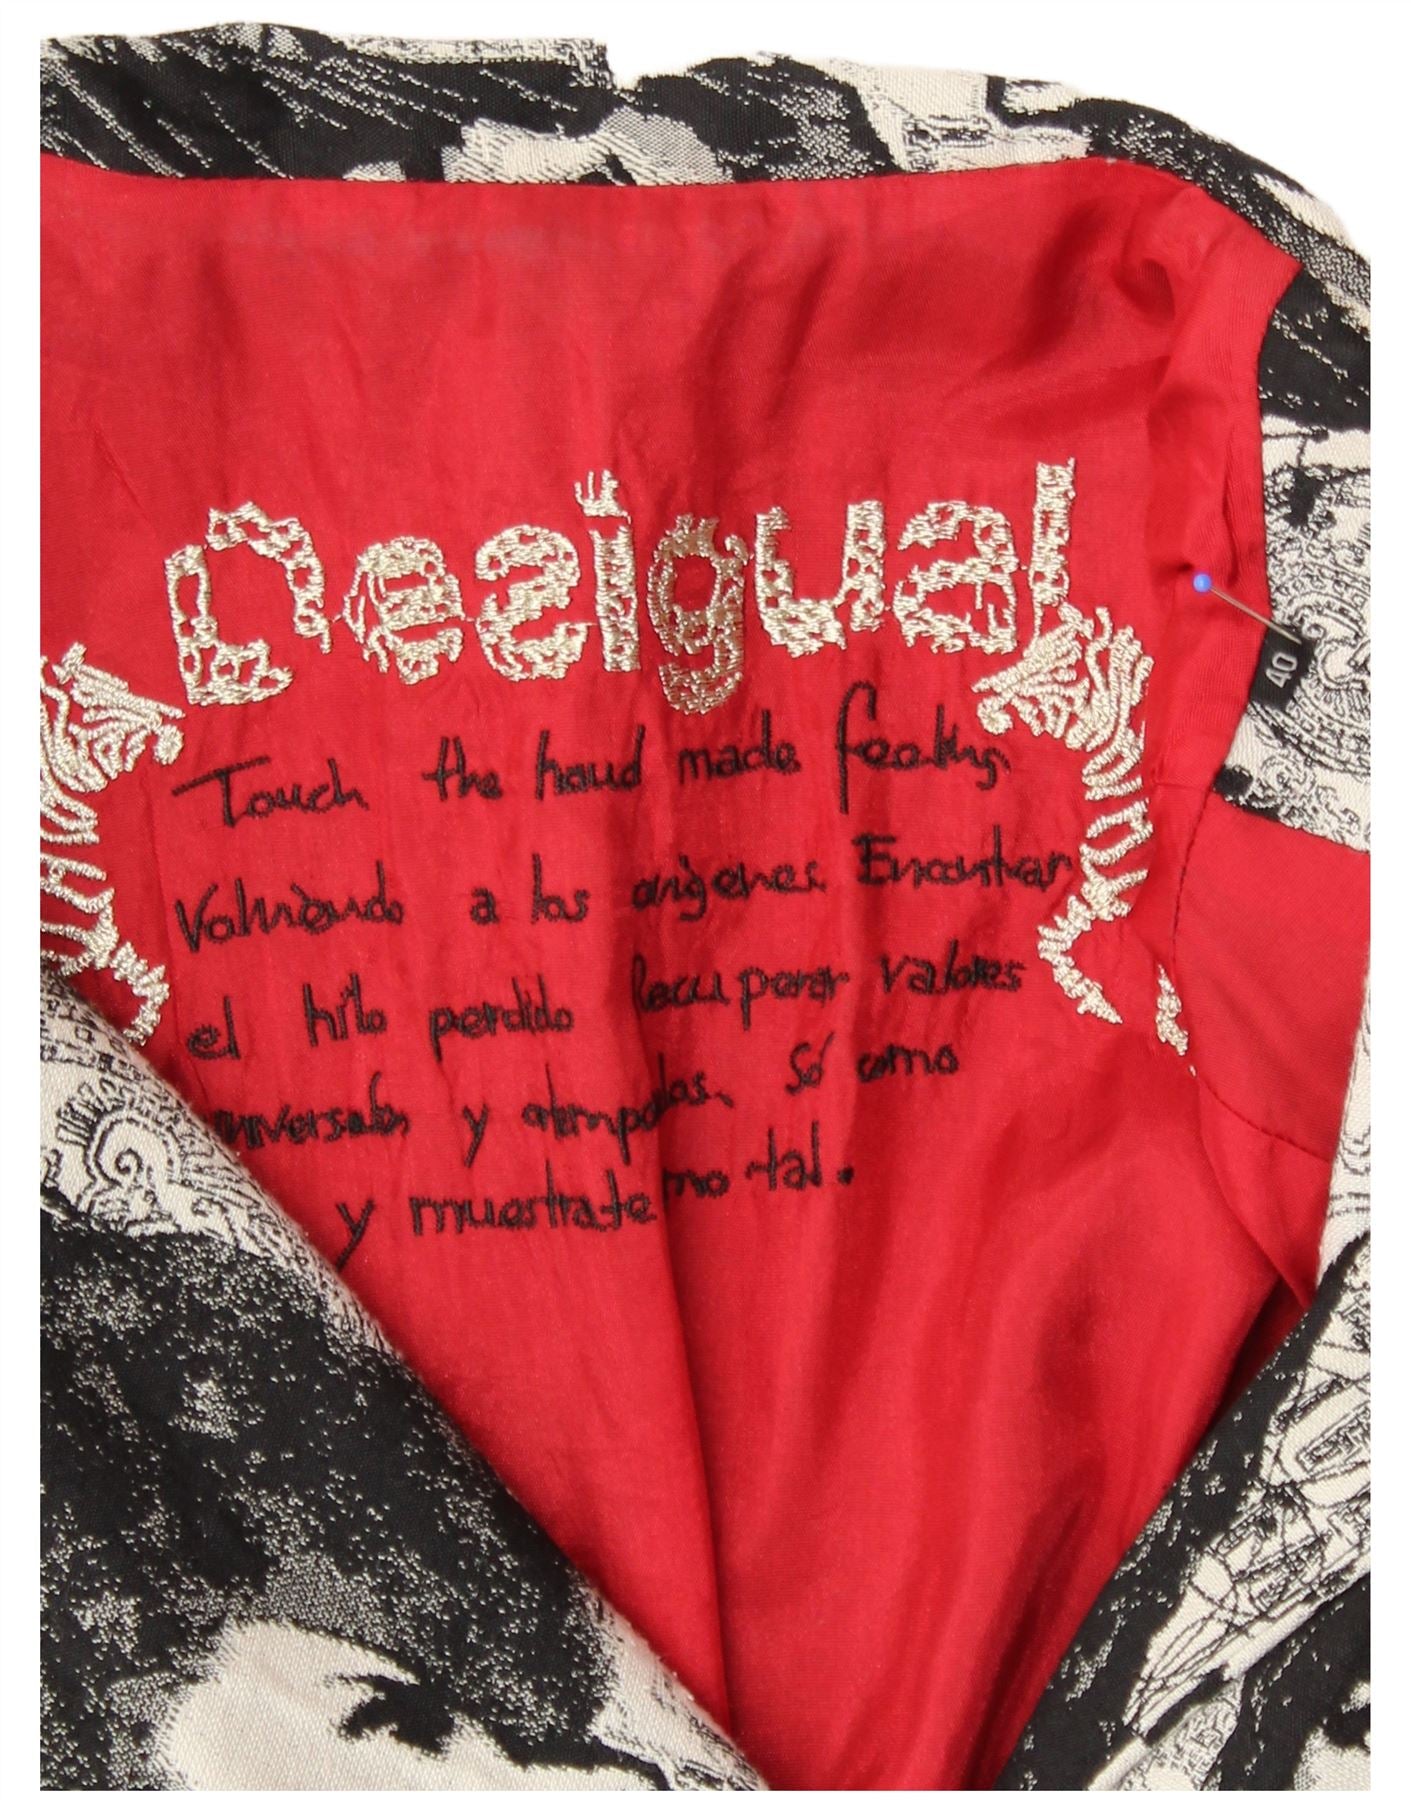 Desigual
40
Touch the hand made feeling
Volviendo a los orígenes. Encontrar
el hilo perdido Recuperar valores
universales y atemporales. Sé como
y muestrate mo tal.